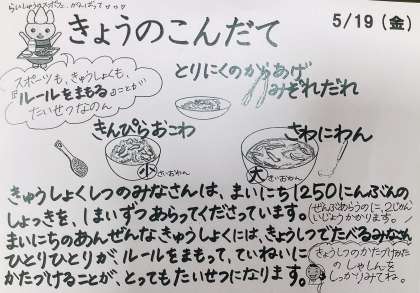 らいしゅうのスポフェス、がんばって
きょうのこんだて
5/19（金）
スポーツも、きゅうしょくも、
『ルールをまもる』ことが
たいせつなのん
とりにくのからあげ
みぞれだれ
きんぴらおこわ
さわにわん
小
さいおわん
大
さいおわん
きゅうしょくしつのみなさんは、まいにち1250にんぶんの
しょっきを、1まいずつあらってくださっています。
ぜんぶあらうのに、2じかん
いじょうかかります。
まいにちのあんぜんなきゅうしょくには、きょうしつでたべるみなさん
ひとりひとりが、ルールをまもって、ていねいに
かたづけることが、とってもたいせつになります。
きょうしつのかたづけかた
のしゃしんを
しっかりみてね。